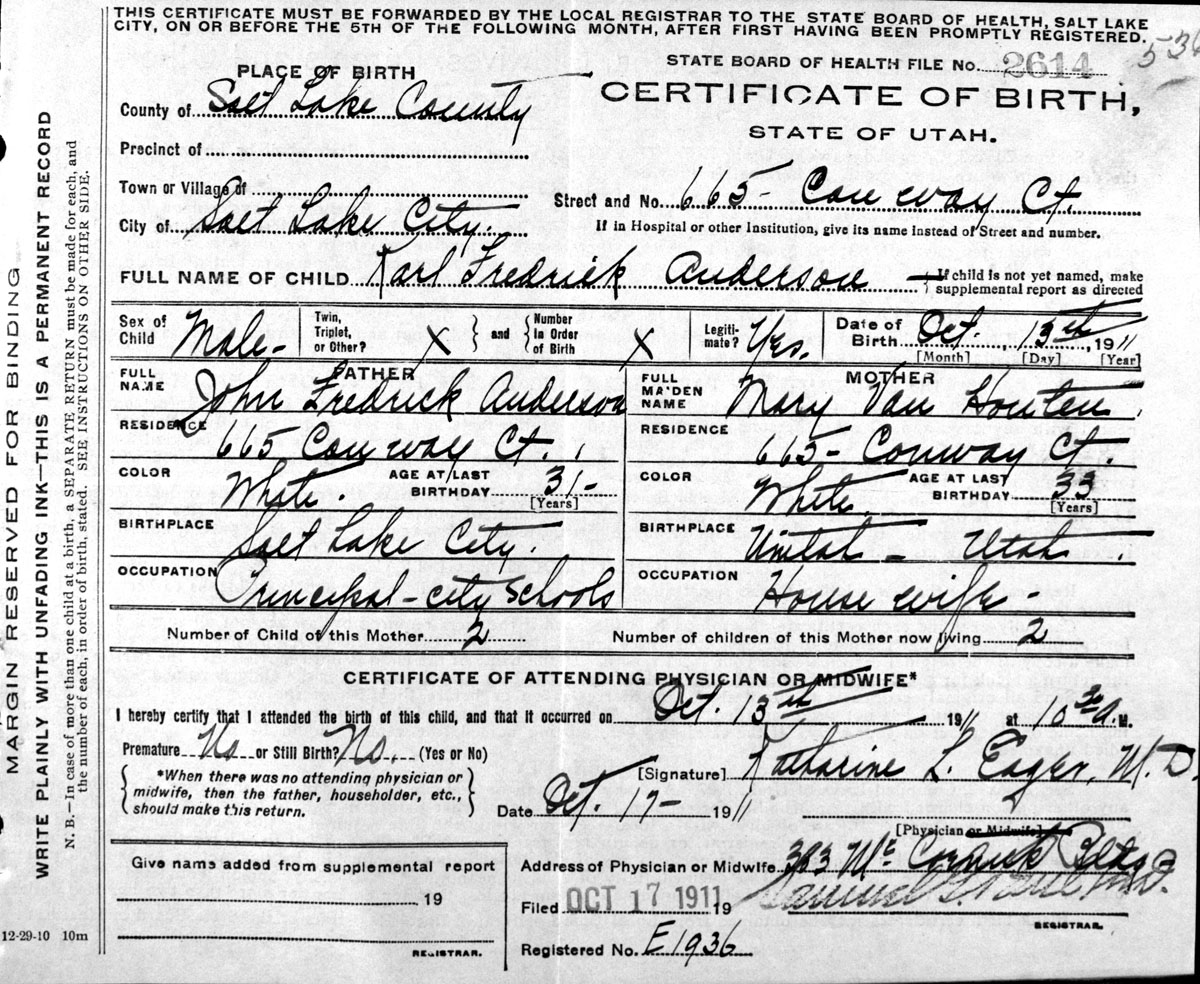 THIS CERTIFICATE MUST BE FORWARDED BY THE LOCAL REGISTRAR TO THE STATE BOARD OF HEALTH, SALT LAKE
CITY, ON OR BEFORE THE 5TH OF THE FOLLOWING MONTH, AFTER FIRST HAVING BEEN PROMPTLY REGISTERED.
536
STATE BOARD OF HEALTH FILE No. 2614
CERTIFICATE OF BIRTH,
STATE OF UTAH.
PLACE OF BIRTH
County of Salt Lake County
Precinct of
Town or Village of
City of Salt Lake City.
Street and No. 665- Conway Ct.
If in Hospital or other Institution, give its name instead of Street and number.
FULL NAME OF CHILD Karl Fredrick Anderson
If child is not yet named, make
supplemental report as directed
Sex of Child Male-
Twin, Triplet, or Other? X
and Number In Order of Birth X
Legiti-mate? Yes.
Date of Birth Oct. 13th, 1911
[Month] [Day] [Year]
FATHER
FULL NAME John Fredrick Anderson
RESIDENCE 665 Conway Ct.
COLOR White. AGE AT LAST BIRTHDAY 31-
[Years]
BIRTHPLACE Salt Lake City.
OCCUPATION Principal-city schools
MOTHER
FULL MAIDEN NAME Mary Van Houten.
RESIDENCE 665- Conway Ct.
COLOR White. AGE AT LAST BIRTHDAY 33
[Years]
BIRTHPLACE Utah
OCCUPATION House wife-
Number of Child of this Mother 2
Number of children of this Mother now living 2
CERTIFICATE OF ATTENDING PHYSICIAN OR MIDWIFE*
I hereby certify that I attended the birth of this child, and that it occurred on Oct. 13th 1911 at 10 30 A. M.
Premature No or Still Birth? No. (Yes or No)
*When there was no attending physician or
midwife, then the father, householder, etc.,
should make this return.
[Signature] Katharine L. Eager, M.D.
Date Oct. 17- 1911
[Physician or Midwife]
Address of Physician or Midwife 303 McCornick Bldg
Filed OCT 17 1911 19
Samuel M.D.
REGISTRAR.
Registered No. E1936
Give name added from supplemental report
19
REGISTRAR.
12-29-10 10m
MARGIN RESERVED FOR BINDING
WRITE PLAINLY WITH UNFADING INK—THIS IS A PERMANENT RECORD
N. B.—In case of more than one child at a birth, a SEPARATE RETURN must be made for each, and
the number of each, in order of birth, stated. SEE INSTRUCTIONS ON OTHER SIDE.